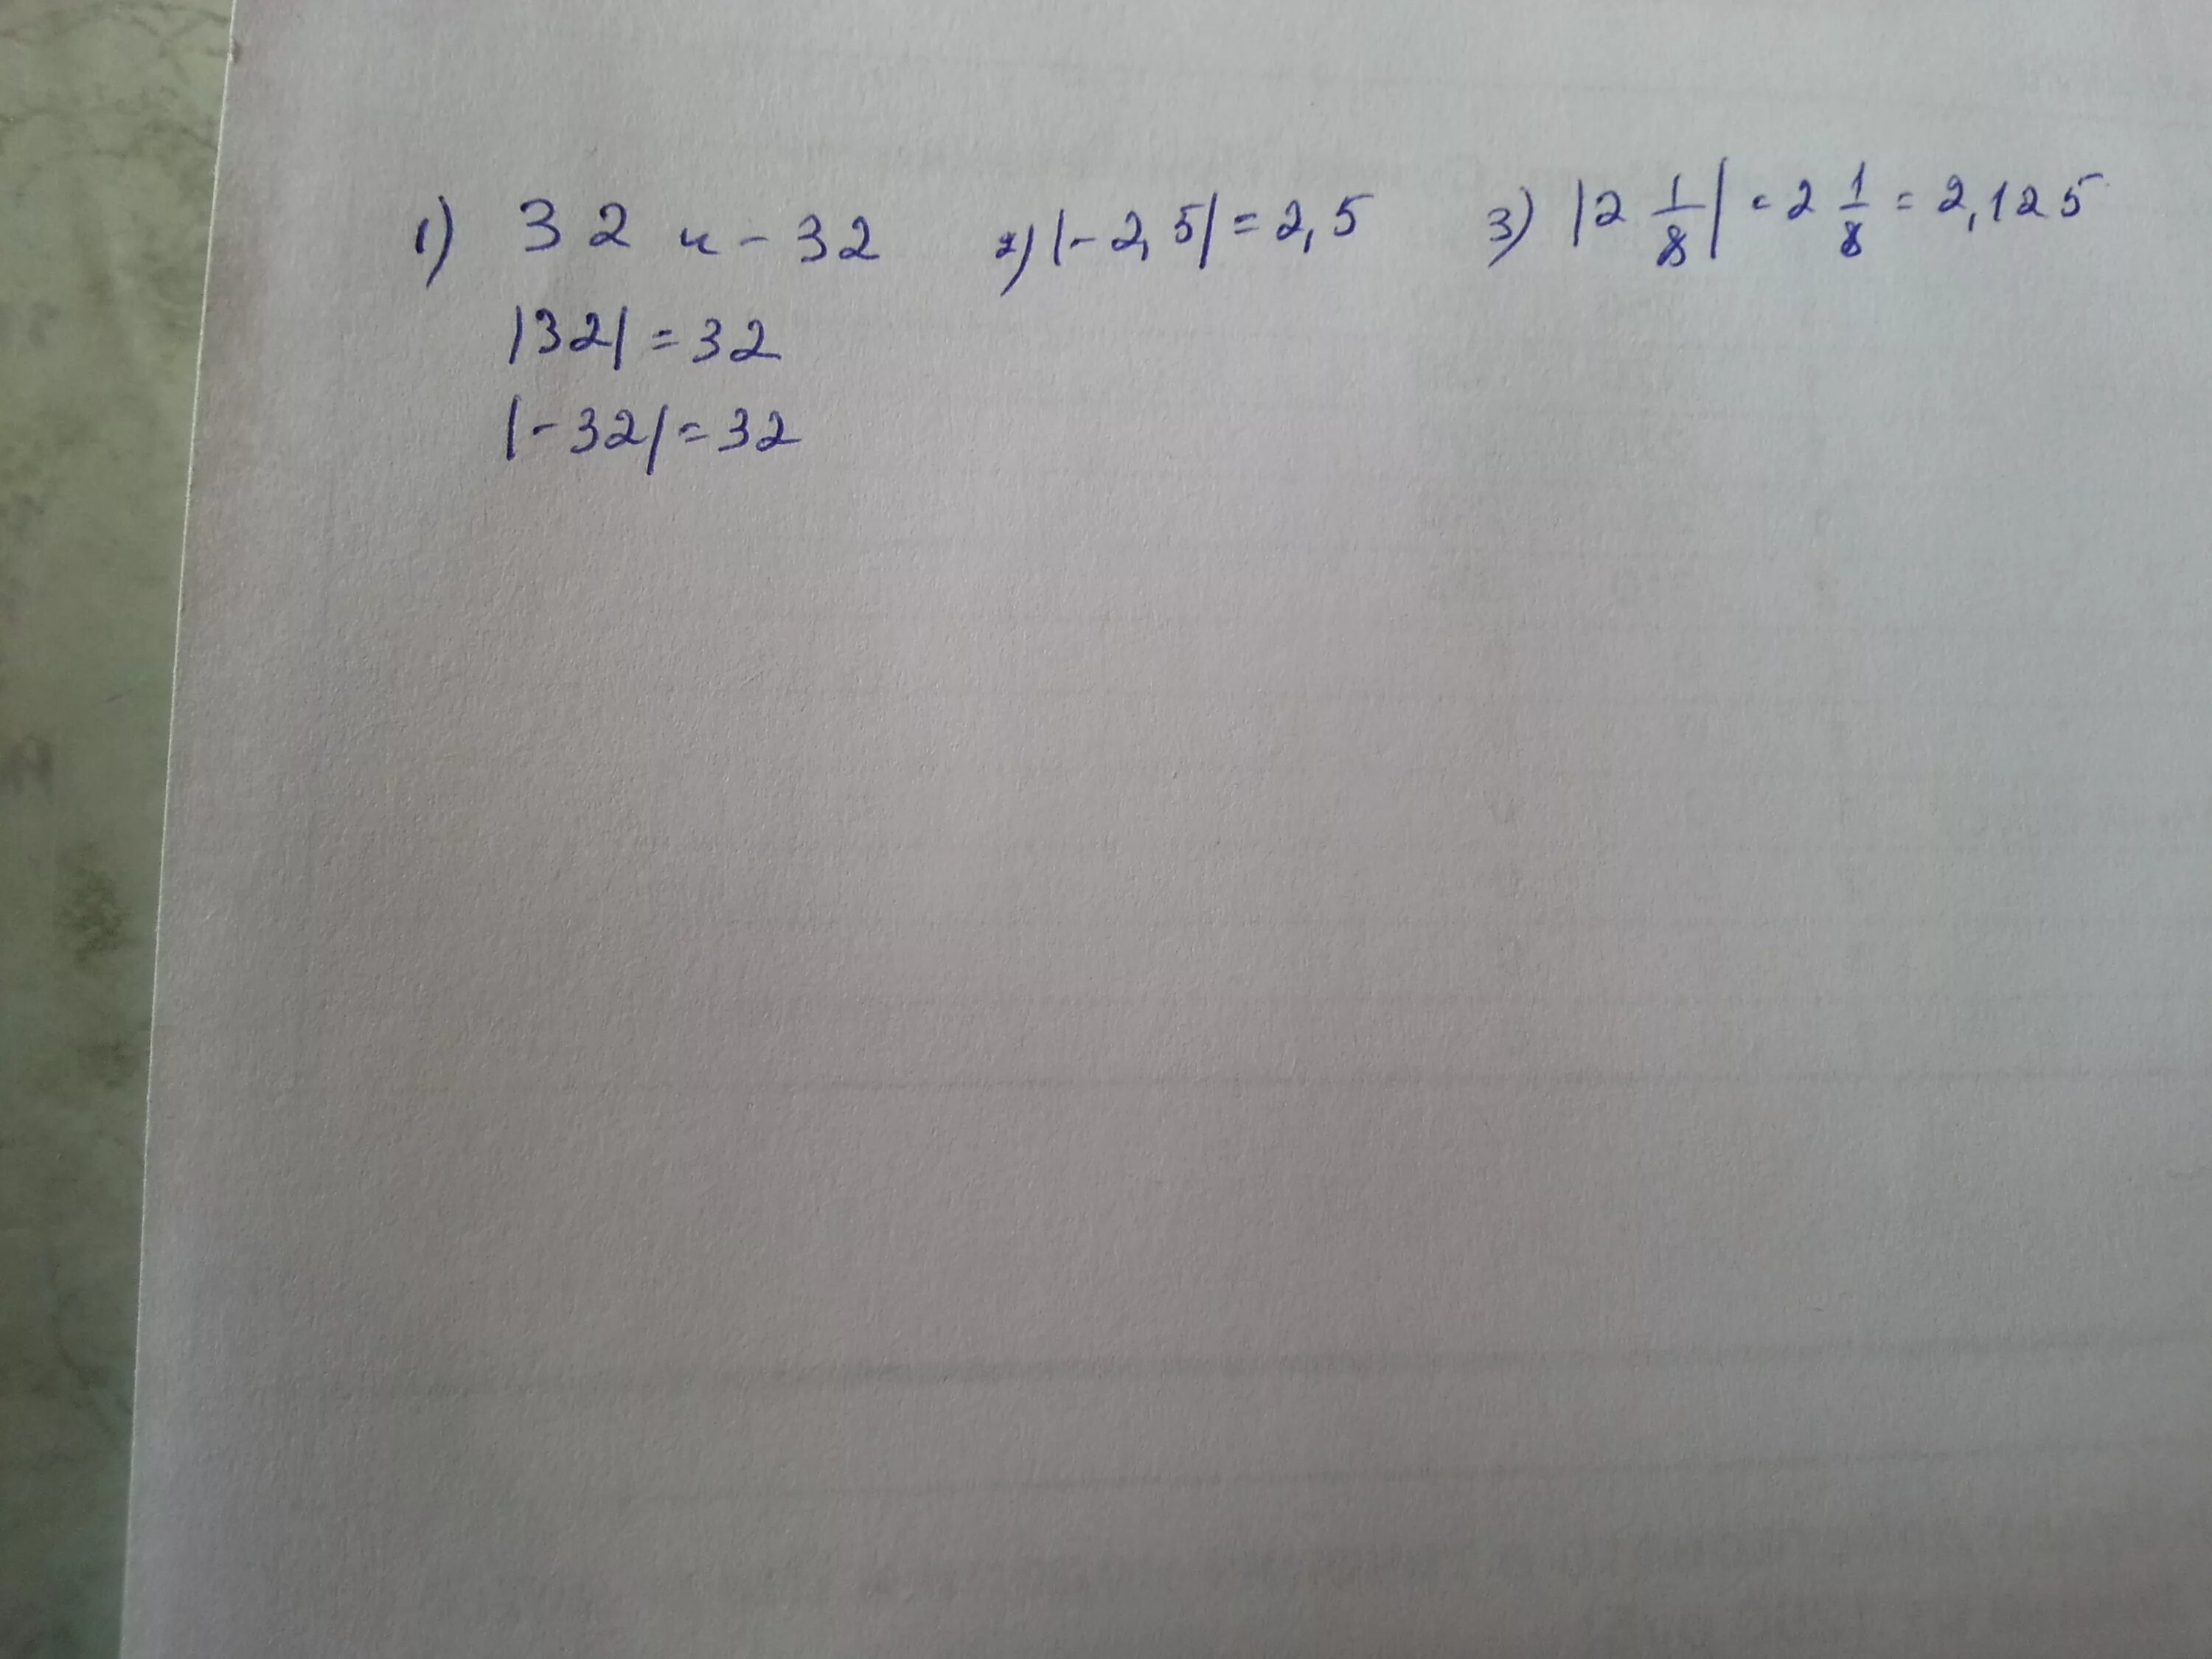 1) 32 и - 32 2) |- 2,5| = 2,5 3) |2 1/8| = 2 1/8 = 2,125
|32| = 32
|- 32| = 32